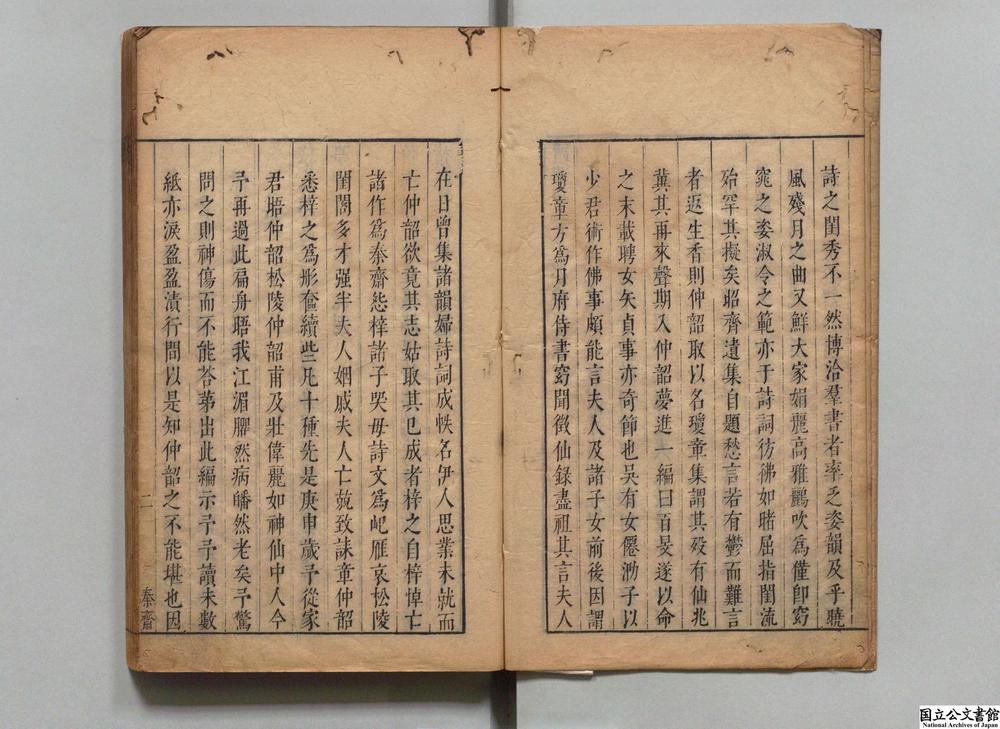 詩之閨秀不一然博洽羣書者率乏姿韻及乎曉
風殘月之曲又鮮大家娟麗高雅鸝吹爲僅卽窈
窕之姿淑令之範亦于詩詞彷彿如睹屈指閨流
殆罕其擬矣昭齊遺集自題愁言若有鬱而難言
者返生香則仲韶取以名瓊章集謂其殁有仙兆
冀其再來聲期入仲韶夢進一編曰百旻遂以命
之末載聘女矢貞事亦奇節也吳有女僊泐子以
少君術作佛事頗能言夫人及諸子女前後因謂
瓊章方爲月府侍書窈聞徵仙錄盡祖其言夫人
在日曾集諸韻婦詩詞成帙名伊人思業未就而
亡仲韶欲竟其志姑取其已成者梓之自梓悼亡
諸作爲秦齋怨梓諸子哭母詩文爲屺雁哀松陵
閨閤多才强半夫人姻戚夫人亡競致誄章仲韶
悉梓之爲彤奩續些凡十種先是庚申歲予從家
君晤仲韶松陵仲韶甫及壯偉麗如神仙中人今
予再過此扁舟晤我江湄臞然病皤然老矣予驚
問之則神傷而不能荅苐出此編示予予讀未數
紙亦淚盈盈漬行間以是知仲韶之不能堪也因
二
秦齋
国立公文書館
National Archives of Japan